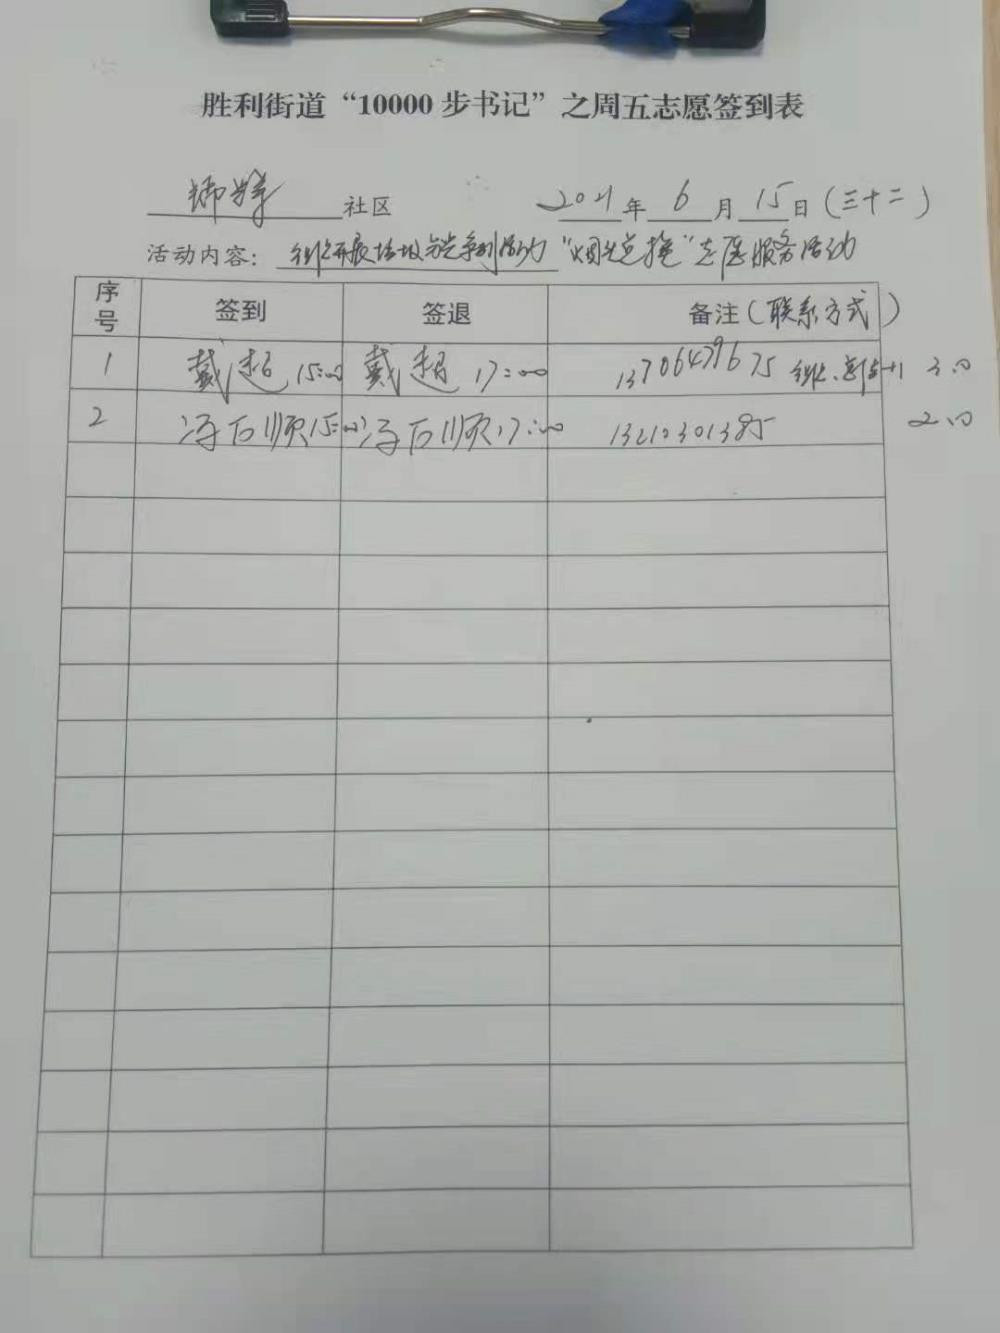 胜利街道“10000步书记”之周五志愿签到表
社区 2021年6月15日(三十二)
活动内容: 开展垃圾分类系列活动“烟尘点捶”志愿服务活动
序号 签到 签退 备注(联系方式)
1 戴超 15:00 戴超 17:00 13706479675 3.0
2 冯石顺 15:00 冯石顺 17:00 13210301385 2.0